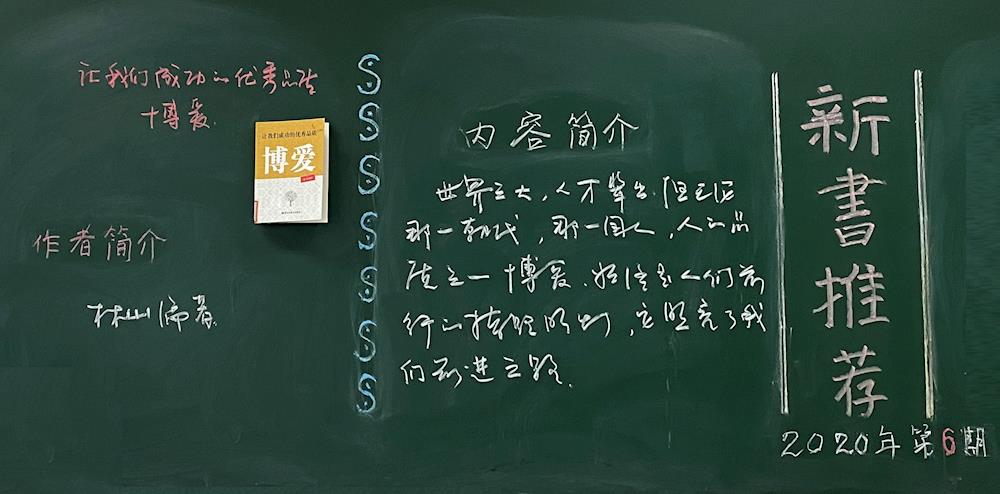 让我们成功的优秀品质
博爱
让我们成功的优秀品质
博爱
作者简介
林山 编著
内容简介
世界之大，人才辈出，但无论
那一朝代，那一国人，人的品
质之一博爱，始终是人们前
行的指路明灯，它照亮了我
们前进之路。
新書推荐
2020年第6期